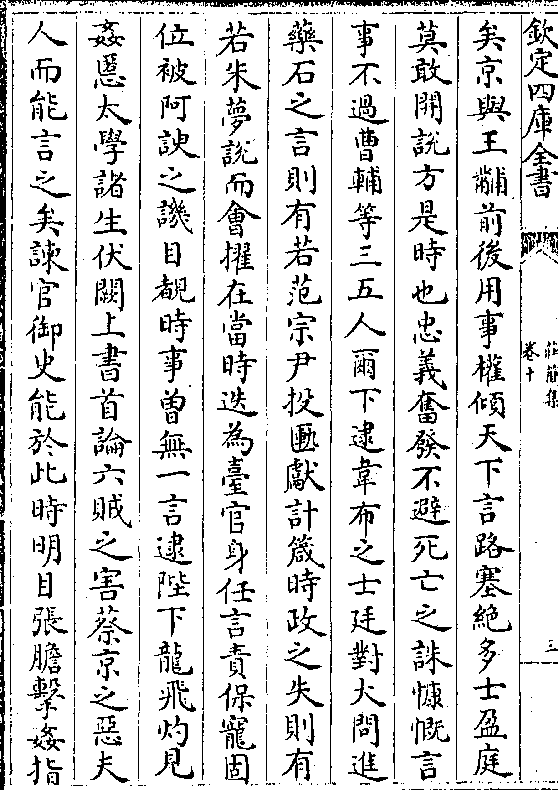 欽定四庫全書
莊簡集
卷十
三
矣京與王黼前後用事權傾天下言路塞絶多士盈庭
莫敢開說方是時也忠義奮發不避死亡之誅慷慨言
事不過曹輔等三五人爾下逮韋布之士廷對大問進
藥石之言則有若范宗尹投匭獻計箴時政之失則有
若朱夢說而會擢在當時迭為臺官身任言責保寵固
位被阿諛之譏目覩時事曽無一言逮陛下龍飛灼見
姦慝太學諸生伏闕上書首論六賊之害蔡京之惡夫
人而能言之矣諫官御史能於此時明目張膽擊姦指